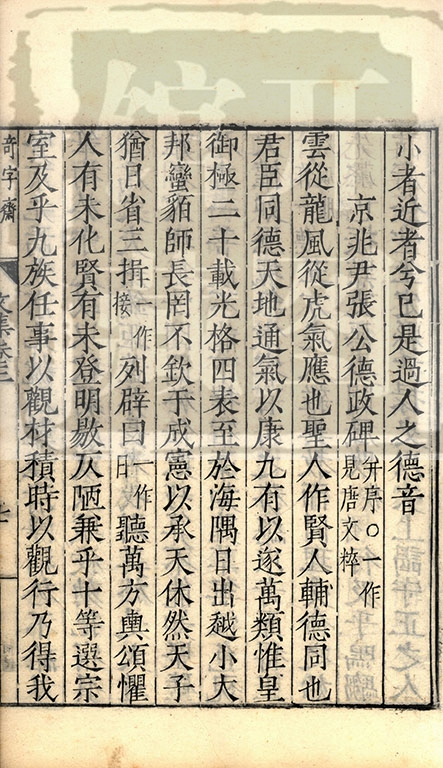 小者近者兮已是過人之德音
京兆尹張公德政碑并序〇一作見唐文粹
雲從龍風從虎氣應也聖人作賢人輔德同也
君臣同德天地通氣以康九有以遂萬類惟皇
御極二十載光格四表至於海隅日出越小大
邦蠻貊師長罔不欽于成憲以承天休然天子
猶日省三揖一作接列辟曰一作日聽萬方輿頌懼
人有未化賢有未登明敭仄陋兼乎十等選宗
室及乎九族任事以觀材積時以觀行乃得我
奇字齋 文集卷三